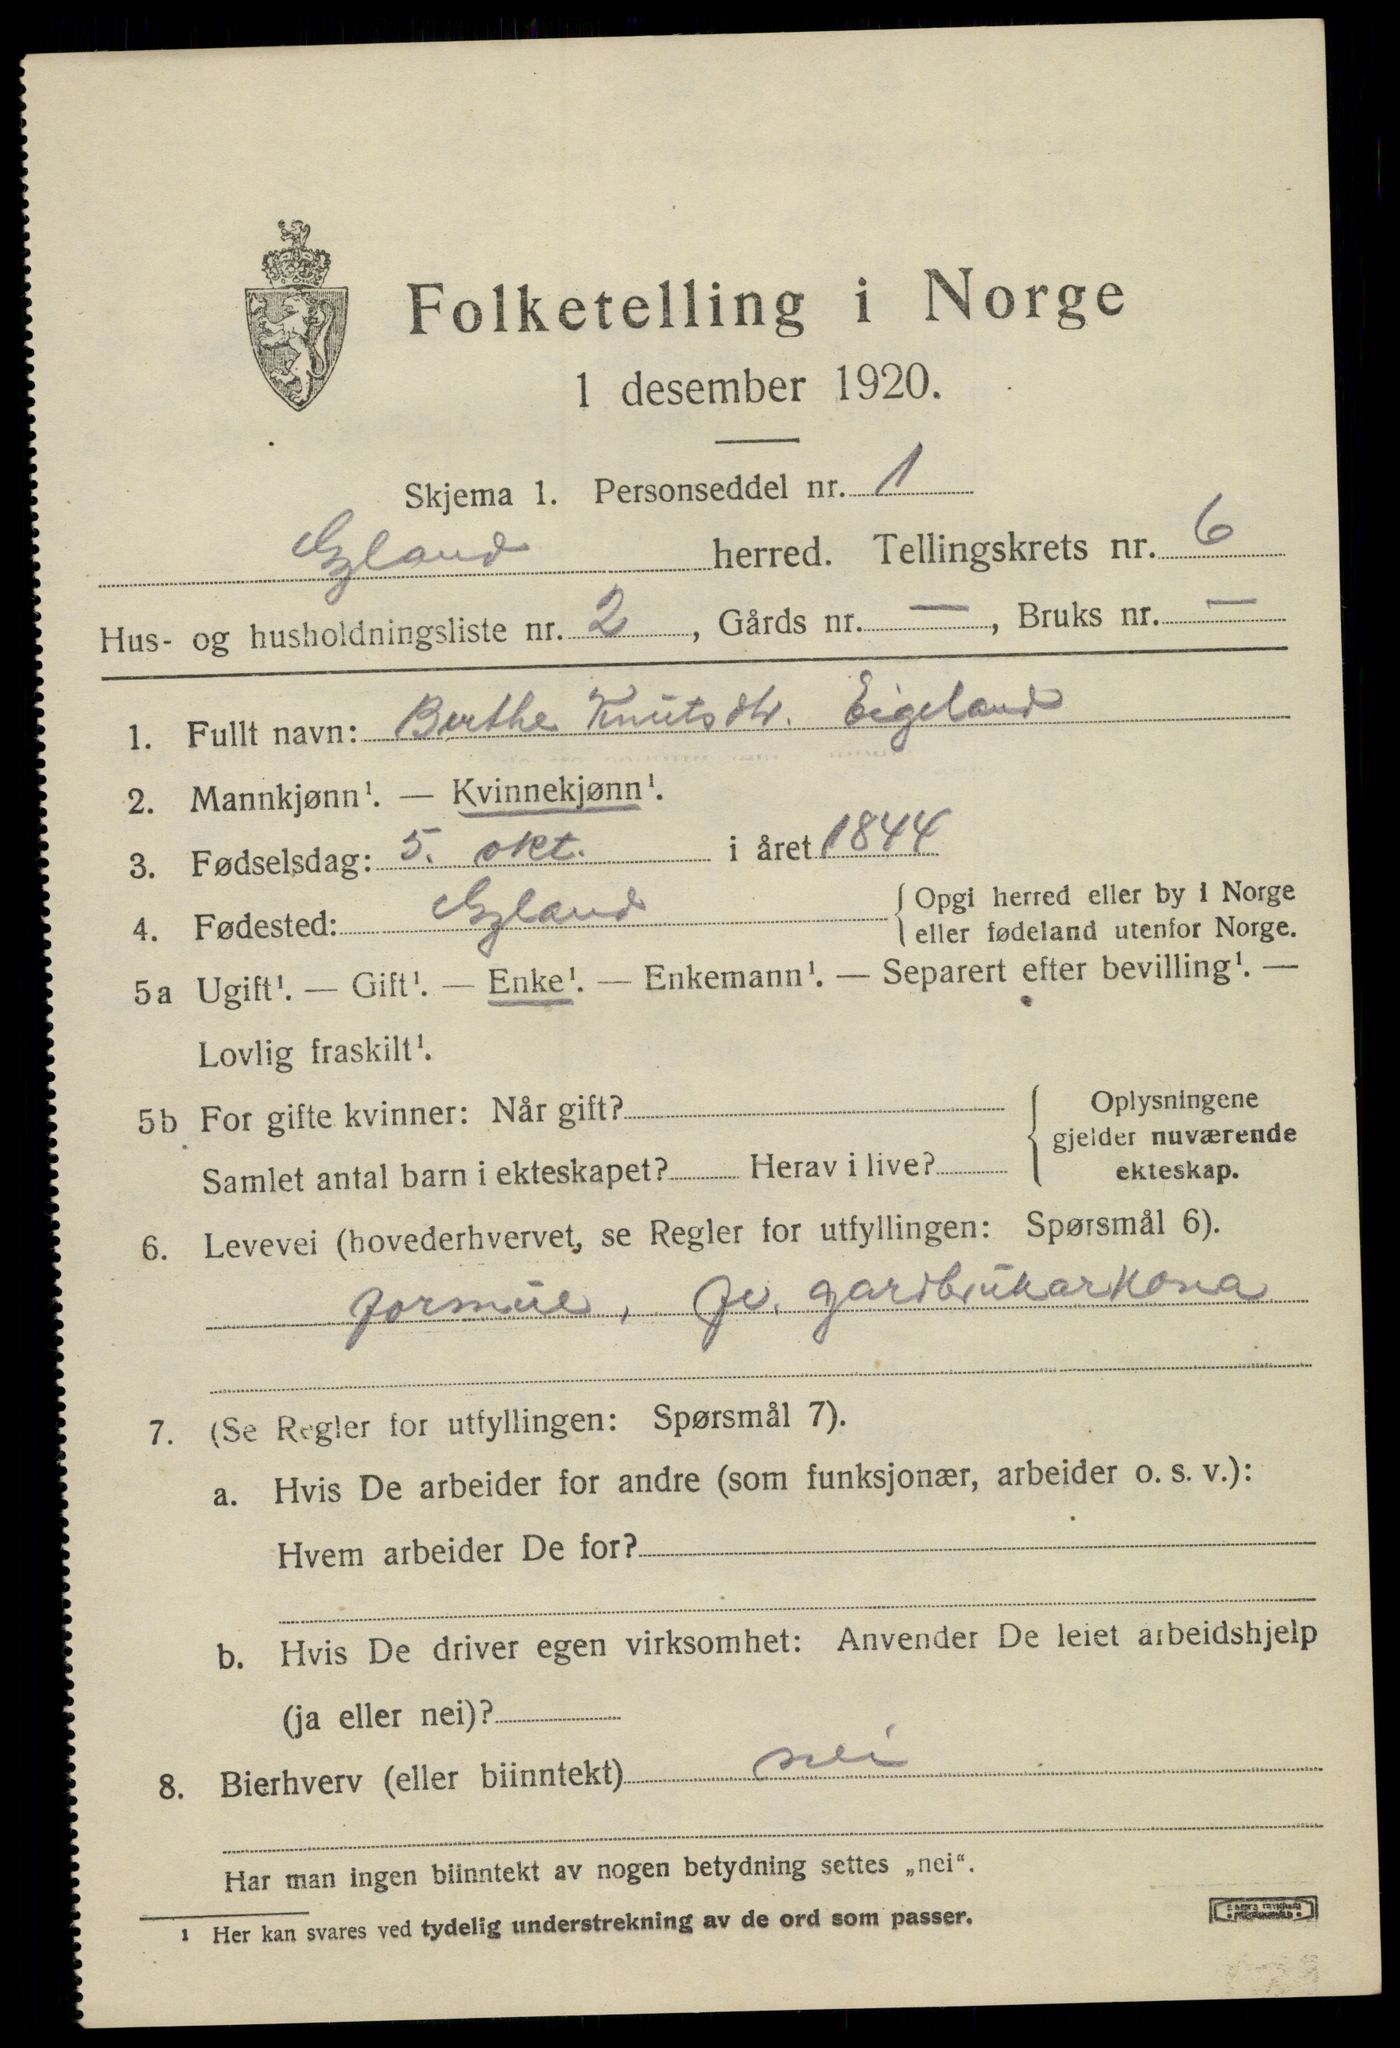 Folketelling i Norge
1 desember 1920.
Skjema 1. Personseddel nr. 1
Gyland herred. Tellingskrets nr. 6
Hus- og husholdningsliste nr. 2, Gårds nr. —, Bruks nr. —
1. Fullt navn: Berthe Knutsdtr. Eigeland
2. Mannkjønn¹. — Kvinnekjønn¹.
3. Fødselsdag: 5. okt. i året 1844
4. Fødested: Gyland { Opgi herred eller by i Norge
eller fødeland utenfor Norge.
5a Ugift¹. — Gift¹. — Enke¹. — Enkemann¹. — Separert efter bevilling¹. —
Lovlig fraskilt¹.
5b For gifte kvinner: Når gift?
Samlet antal barn i ekteskapet? Herav i live?
{ Oplysningene
gjelder nuværende
ekteskap.
6. Levevei (hovederhvervet, se Regler for utfyllingen: Spørsmål 6).
formue, fv. gardbrukarkona
7. (Se Regler for utfyllingen: Spørsmål 7).
a. Hvis De arbeider for andre (som funksjonær, arbeider o. s. v.):
Hvem arbeider De for?
b. Hvis De driver egen virksomhet: Anvender De leiet arbeidshjelp
(ja eller nei)?
8. Bierhverv (eller biinntekt) nei
Har man ingen biinntekt av nogen betydning settes „nei“.
1 Her kan svares ved tydelig understrekning av de ord som passer.